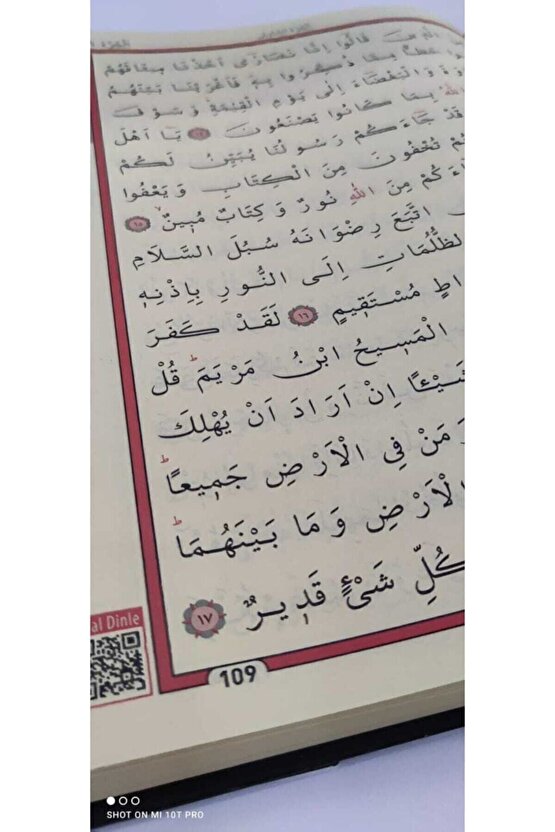 قَالُوا اِنَّا نَصَارٰٓى اَخَذْنَا مِيثَاقَهُمْ
بِمَا ذُكِّرُوا بِهِ فَاَغْرَيْنَا بَيْنَهُمُ
وَالْبَغْضَٓاءَ اِلٰى يَوْمِ الْقِيٰمَةِ وَسَوْفَ
اللّٰهُ بِمَا كَانُوا يَصْنَعُونَ ١٤ يَٓا اَهْلَ
قَدْ جَٓاءَكُمْ رَسُولُنَا يُبَيِّنُ لَكُمْ
تُخْفُونَ مِنَ الْكِتَابِ وَيَعْفُوا
كُمْ مِنَ اللّٰهِ نُورٌ وَكِتَابٌ مُبٖينٌ ١٥
اتَّبَعَ رِضْوَانَهُ سُبُلَ السَّلَامِ
الظُّلُمَاتِ اِلَى النُّورِ بِاِذْنِهٖ
مُسْتَقٖيمٍ ١٦ لَقَدْ كَفَرَ
الْمَسٖيحُ ابْنُ مَرْيَمَ ط قُلْ
شَيْـًٔا اِنْ اَرَادَ اَنْ يُهْلِكَ
وَمَنْ فِي الْاَرْضِ جَمٖيعًا ط
الْاَرْضِ وَمَا بَيْنَهُمَا ط
كُلِّ شَيْءٍ قَدٖيرٌ ١٧
al Dinle
109
SHOT ON MI 10T PRO